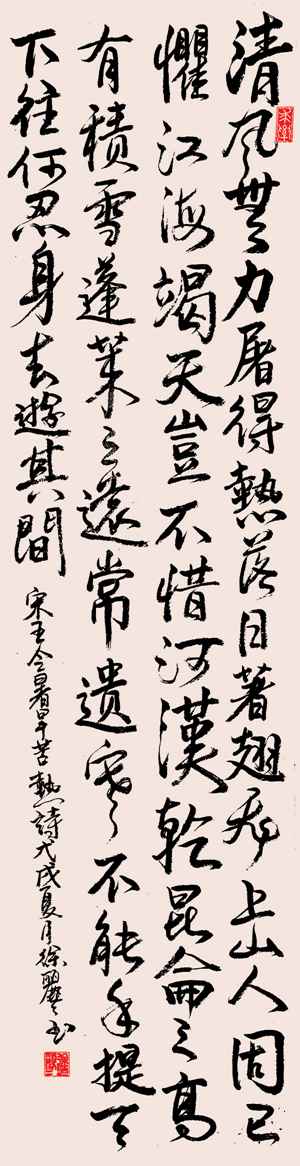 清風無力屠得熱落日著翅飛上山人固已
懼江海竭天豈不惜河漢乾昆侖之高
有積雪蓬萊之遠常遺寒不能手提天
下往何忍身去遊其間
宋王令暑旱苦熱詩戊戌夏月徐麗書